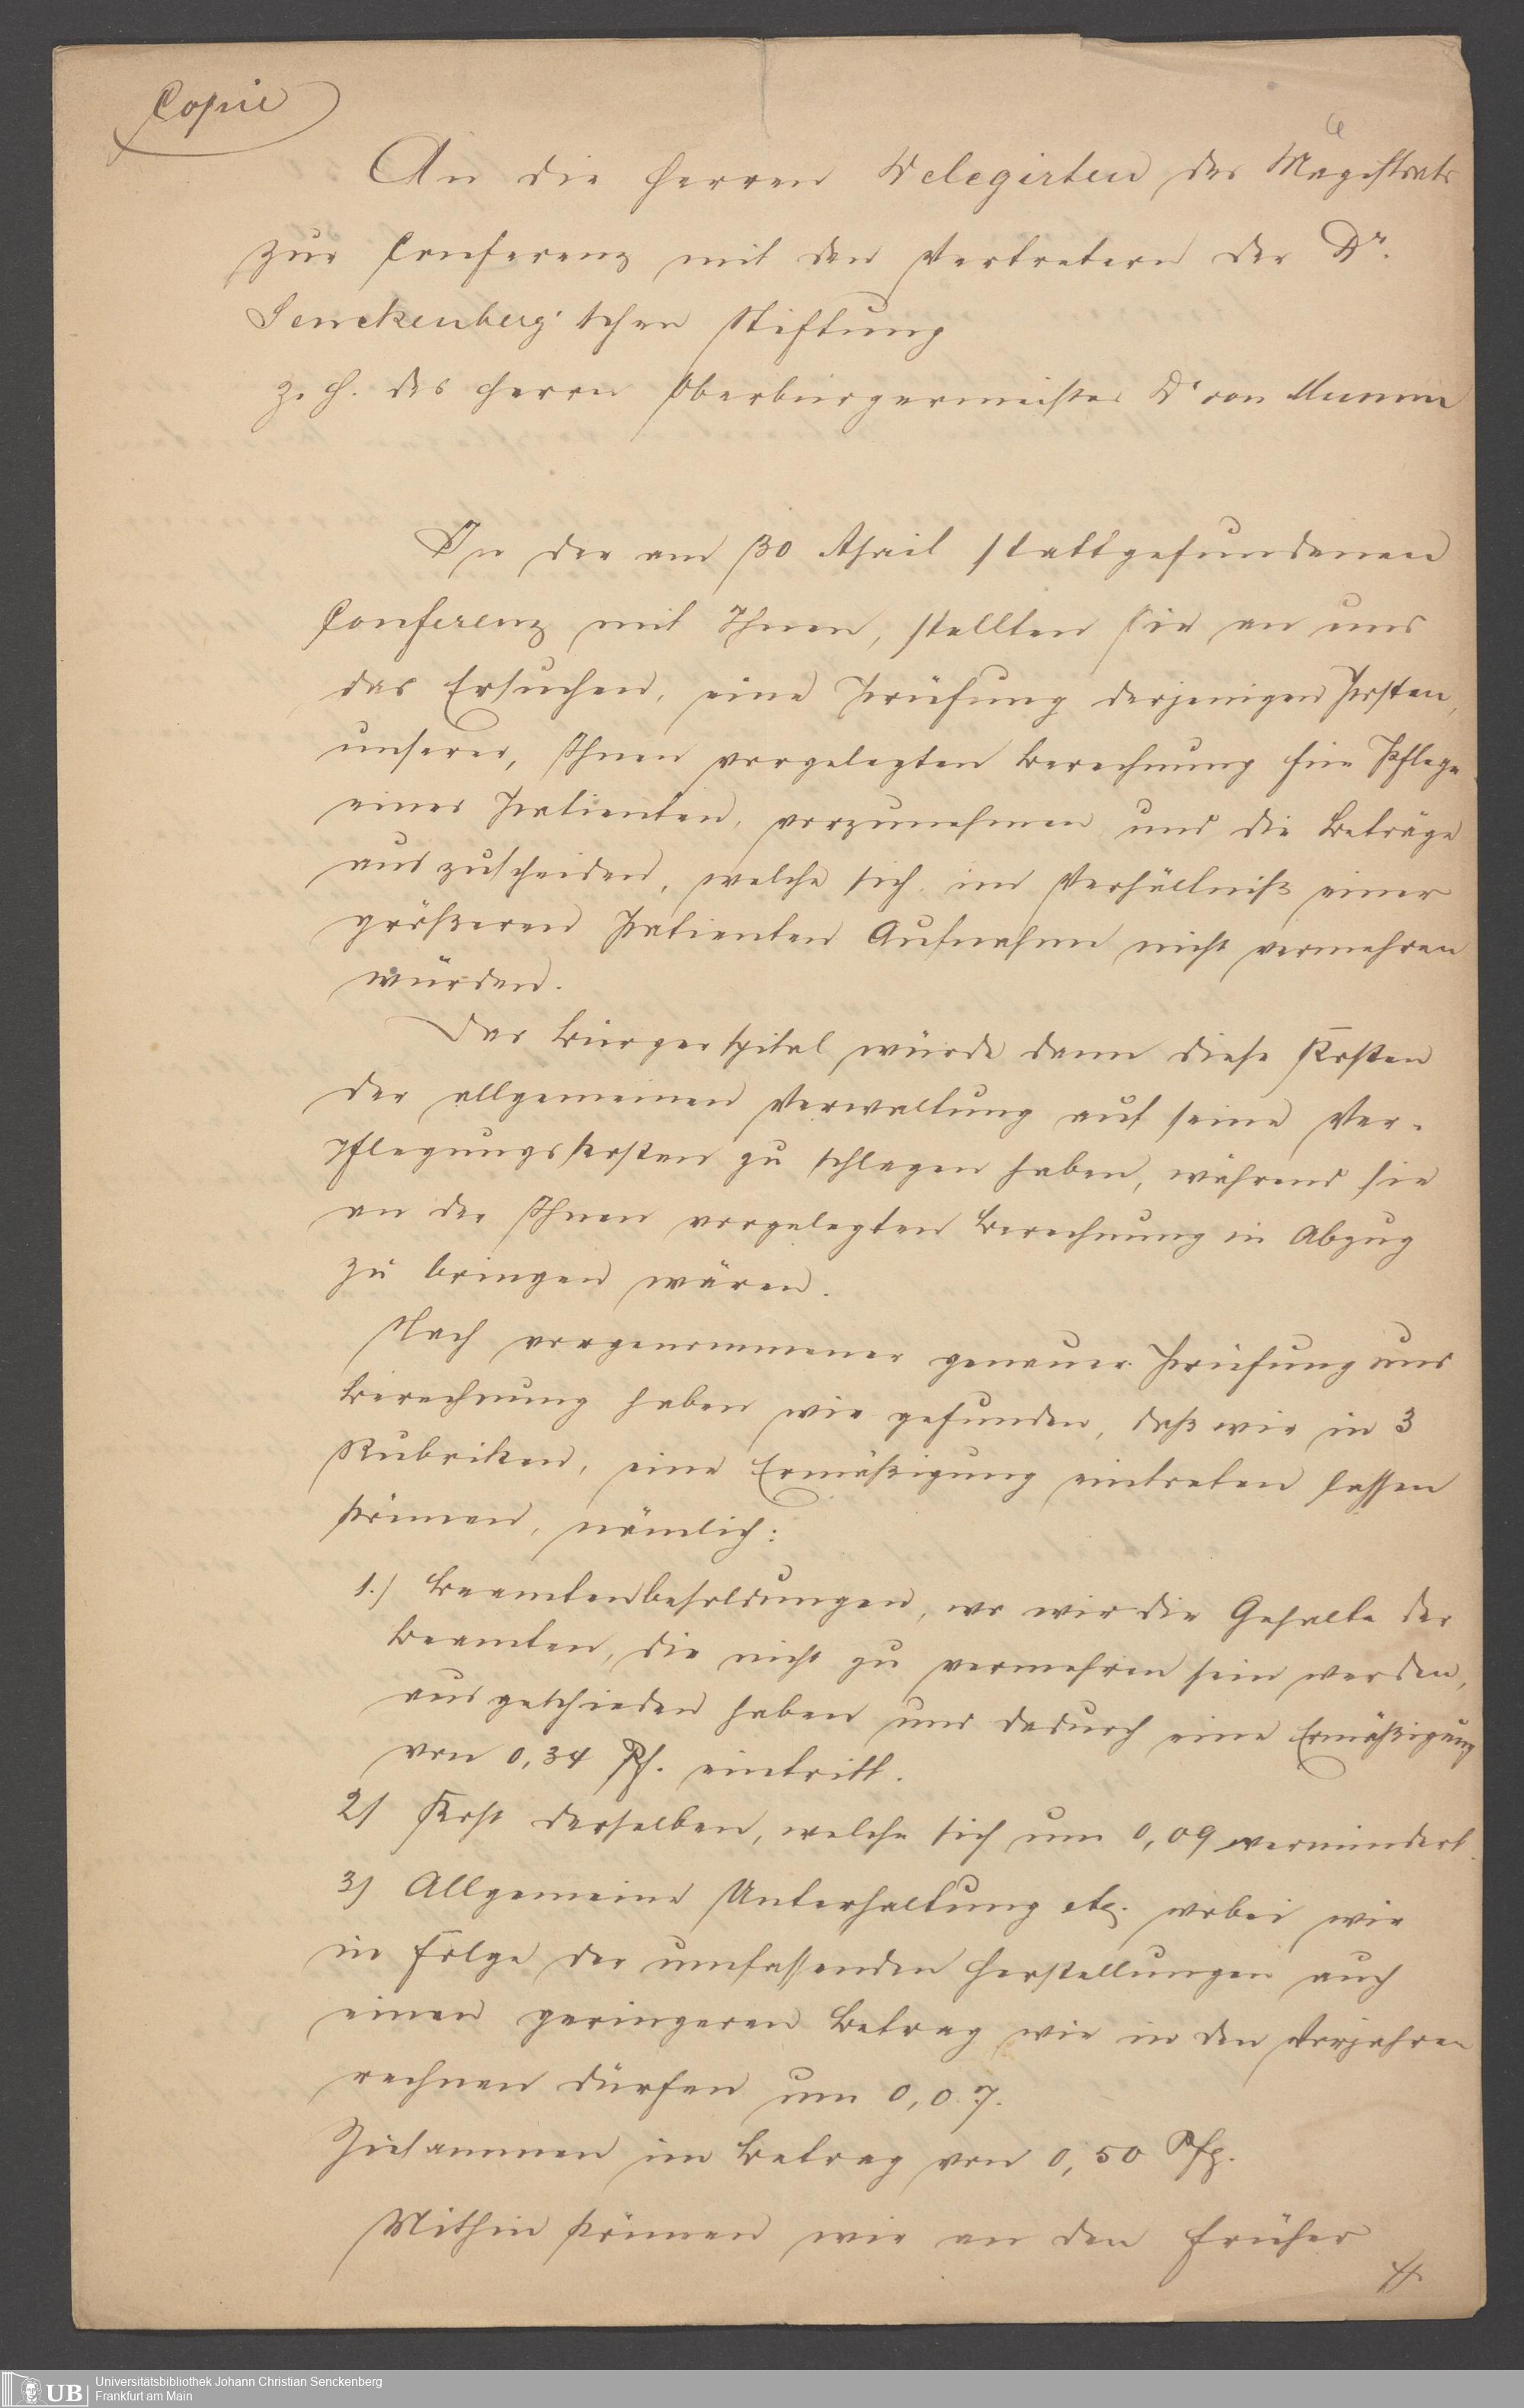 Copie
6
An die Herren Delegirten des Magistrats
zur Conferenz mit den Vertretern der Dr.
Senckenberg'schen Stiftung
z. H. des Herrn Oberbürgermeister Dr von Mumm
In der am 30 April stattgefundenen
Conferenz mit Ihnen, stellten Sie an uns
das Ersuchen, eine Prüfung derjenigen Posten,
unserer, Ihnen vorgelegten Berechnung für Pflege
eines Patienten, vorzunehmen und die Beträge
auszuscheiden, welche sich im Verhältniß einer
größeren Patienten Aufnahme nicht vermehren
würden.
Das Bürgerspital würde dann diese Kosten
der allgemeinen Verwaltung auf seine Ver-
pflegungskosten zu schlagen haben, während sie
an der Ihnen vorgelegten Berechnung in Abzug
zu bringen wären.
Nach vorgenommener genauer Prüfung und
Berechnung haben wir gefunden, daß wir in 3
Rubriken, eine Ermäßigung eintreten lassen
können, nämlich:
1.) Beamtenbesoldungen, wo wir die Gehalte der
Beamten, die nicht zu vermehren sein werden,
ausgeschieden haben und dadurch eine Ermäßigung
von 0,34 Pf. eintritt.
2) Kost derselben, welche sich um 0,09 vermindert.
3) Allgemeine Unterhaltung etc. wobei wir
in Folge der umfassenden Herstellungen auch
einen geringeren Betrag wie in den Vorjahren
rechnen dürfen um 0,07.
Zusammen im Betrag von 0,50 Pfg.
Mithin können wir an den früher
UB Universitätsbibliothek Johann Christian Senckenberg
Frankfurt am Main